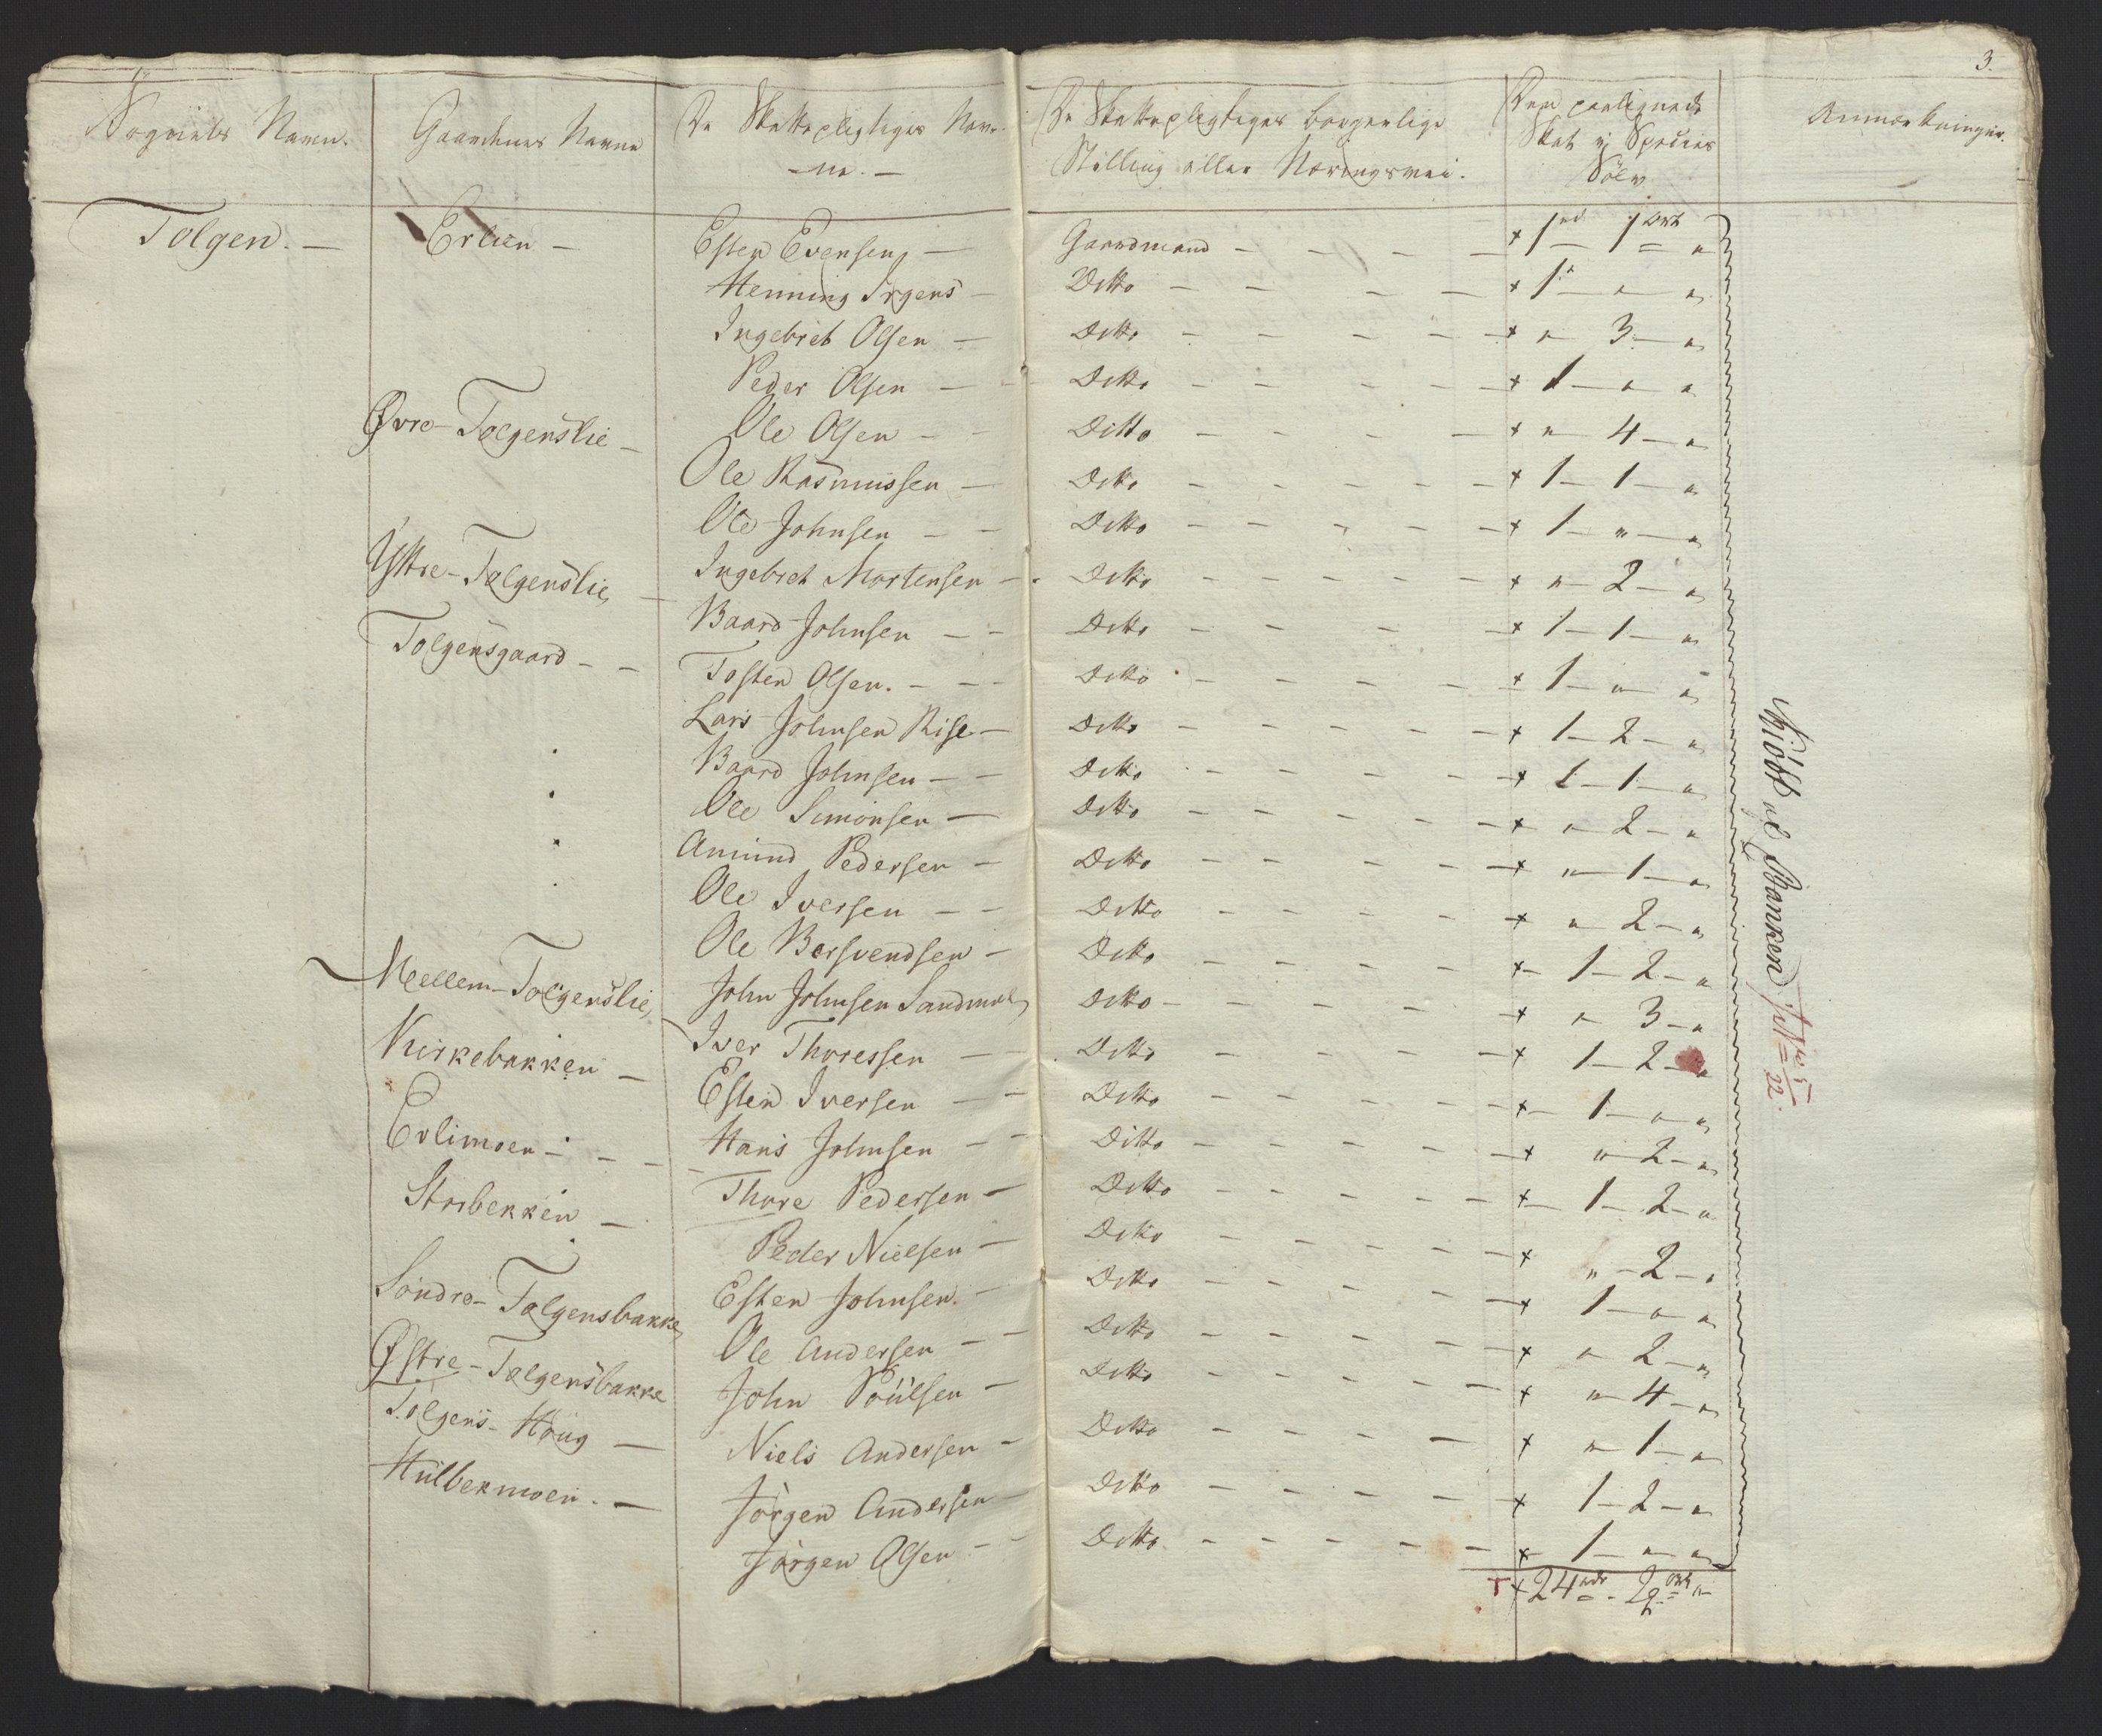 3.
Sognets Navn. Gaardenes Navne De Skattepligtiges Nav- De Skattepligtiges borgerlige Den paalignede Anmærkninger.
-ne. - Stilling eller Næringsvei. Skat i Species
Sölv
Tolgen. - Erlien - Esten Evensen - Gaardmand - - - - + 1 rd 1 ort "
Henning Irgens - Ditto - - - - + 1 " "
Ingebret Olsen - Ditto - - - - + " 3 - "
Peder Olsen - - Ditto - - - - + 1 - " "
Øvre-Tolgenslie - Ole Olsen - - Ditto - - - - + " 4 - "
Ole Rasmussen - Ditto - - - - + 1 - 1 - "
Ole Johnsen - - Ditto - - - - + 1 - " - "
Yttre-Tolgenslie - Ingebret Mortensen - Ditto - - - - + " 2 - "
Tolgensgaard - - Baard Johnsen - - Ditto - - - - + 1 - 1 - "
Tosten Olsen. - - - Ditto - - - - + 1 - " "
Lars Johnsen Rise - Ditto - - - - + 1 - 2 - "
Baard Johnsen - - Ditto - - - - + 1 - 1 - "
Ole Simonsen - Ditto - - - - + " 2 - "
Amund Pedersen - Ditto - - - - + " 1 - "
Ole Iversen - - Ditto - - - - + " 2 - "
Ole Bersvendsen - Ditto - - - - + 1 - 2 - "
Mellem-Tolgenslie, John Johnsen Sandmoe, Ditto - - - - + " 3 - "
Kirkebakken - Iver Thoressen - - Ditto - - - - + 1 - 2 - "
Esten Iversen - - Ditto - - - - + 1 - " "
Erlimoen - - - Hans Johnsen - - Ditto - - - - + " 2 - "
Storbekken - Thore Pedersen - Ditto - - - - + 1 - 2 - "
Peder Nielsen - Ditto - - - - + " - 2 - "
Söndre-Tolgensbakke, Esten Johnsen. - Ditto - - - - + 1 - " "
Østre-Tolgensbakke Ole Andersen - - Ditto - - - - + " 2 - "
Tolgens-Houg - John Poulsen - Ditto - - - - + " 4 - "
Hulbekmoen. - Niels Andersen - Ditto - - - - + " 1 - "
Jörgen Andersen - Ditto - - - - + 1 - 2 - "
Jörgen Olsen - - Ditto - - - - + 1 - " "
+ 24 rdr - 2 ort "
Banken